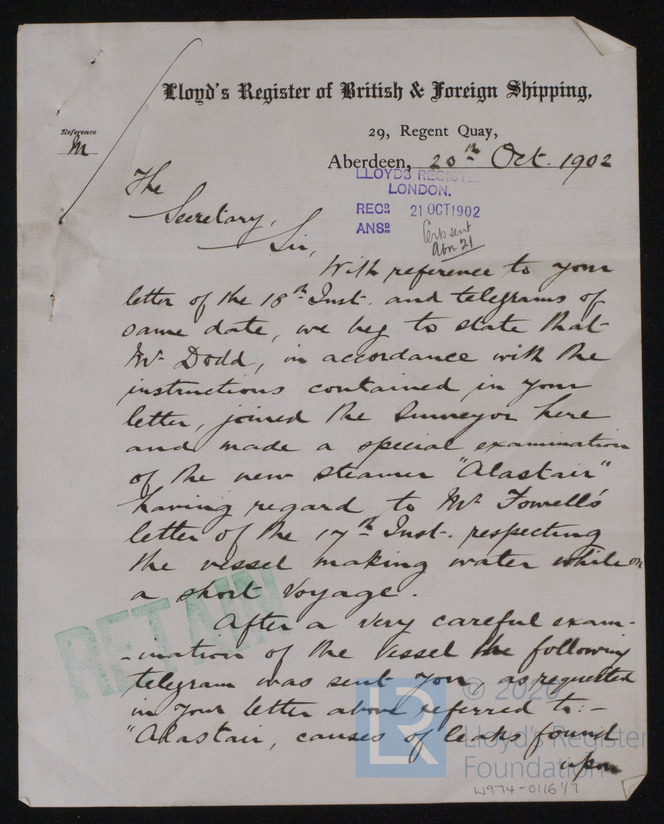 Lloyd's Register of British & Foreign Shipping,
29, Regent Quay,
Reference
M
Aberdeen, 20th Oct. 1902
The
Secretary,
Sir,
LLOYDS REGISTE
LONDON.
RECD 21 OCT 1902
ANSD
Certs sent
21
With reference to your
letter of the 18th Inst. and telegrams of
same date, we beg to state that
Mr Dodd, in accordance with the
instructions contained in your
letter, joined the Surveyor here
and made a special examination
of the new steamer "Alastair"
having regard to Mr Fowell's
letter of the 17th Inst. respecting
the vessel making water while on
a short voyage.
After a very careful exam-
-ination of the vessel the following
telegram was sent you, as requested
in your letter above referred to:-
"Alastair, causes of leaks found
upon
RETAIN
LR
© 2020
Lloyd's Register
Foundation
W974-0116 1/7